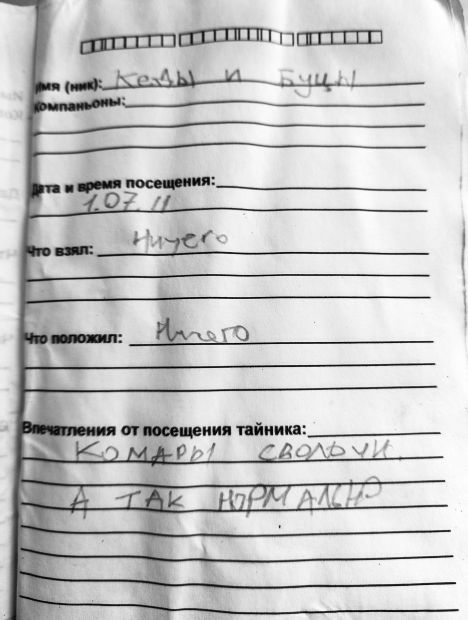 Имя (ник): Кеды и Буцы
Компаньоны:
Дата и время посещения:
1.07.11
Что взял: Ничего
Что положил: Ничего
Впечатления от посещения тайника:
Комары сволочи.
А так нормально